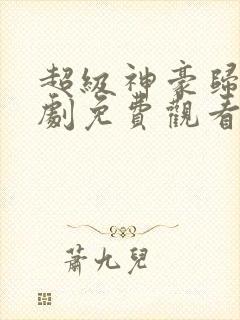 超級神豪歸
劇免費觀看
蕭九兒